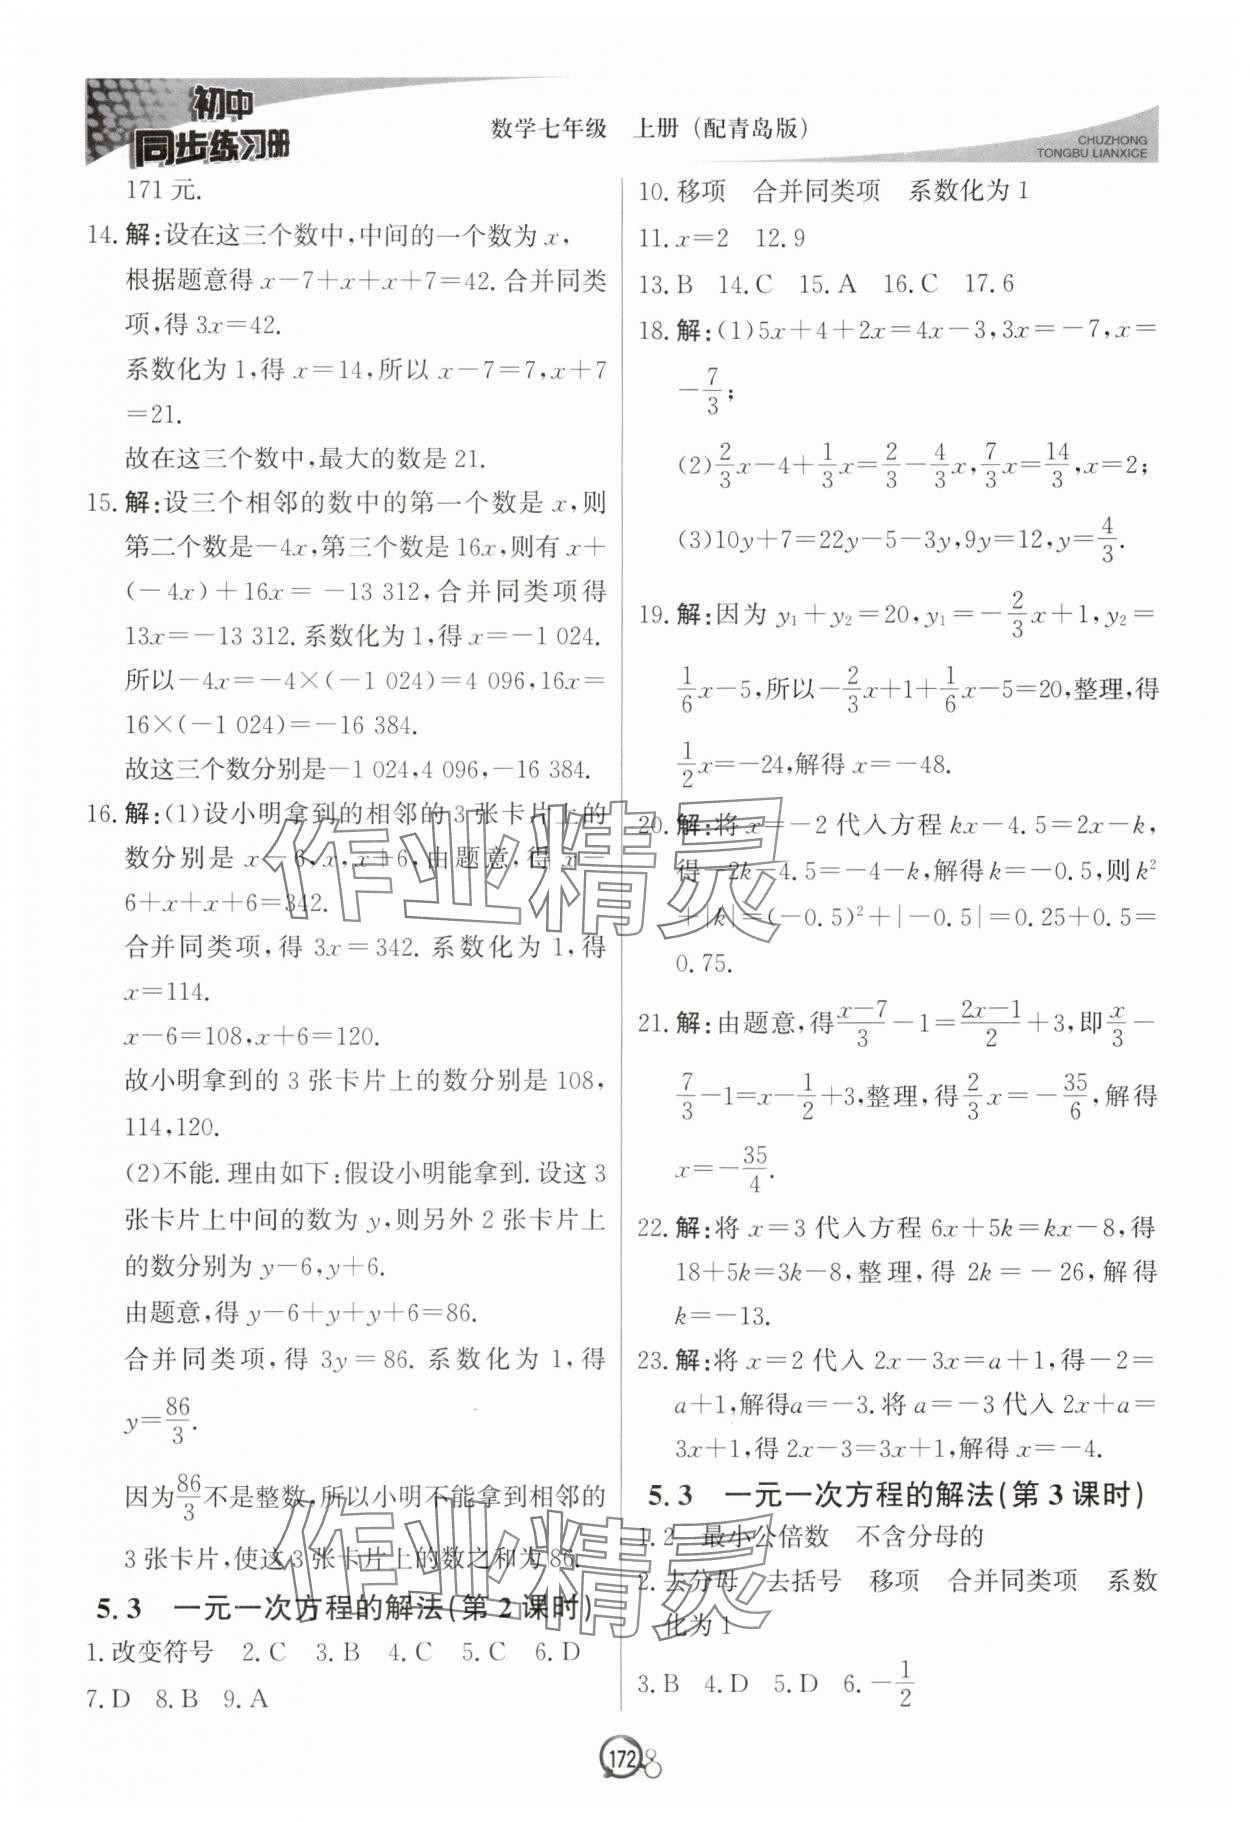 初中
同步练习册
数学七年级 上册(配青岛版)
CHUZHONG
TONGBU LIANXICE
171元.
14.解:设在这三个数中,中间的一个数为x,
根据题意得x-7+x+x+7=42.合并同类
项,得3x=42.
系数化为1,得x=14,所以x-7=7,x+7
=21.
故在这三个数中,最大的数是21.
15.解:设三个相邻的数中的第一个数是x,则
第二个数是-4x,第三个数是16x,则有x+
(-4x)+16x=-13 312,合并同类项得
13x=-13 312.系数化为1,得x=-1 024.
所以-4x=-4×(-1 024)=4 096,16x=
16×(-1 024)=-16 384.
故这三个数分别是-1 024,4 096,-16 384.
16.解:(1)设小明拿到的相邻的3张卡片上的
数分别是x-6,x,x+6,由题意,得x-
6+x+x+6=342.
合并同类项,得3x=342.系数化为1,得
x=114.
x-6=108,x+6=120.
故小明拿到的3张卡片上的数分别是108,
114,120.
(2)不能.理由如下:假设小明能拿到.设这3
张卡片上中间的数为y,则另外2张卡片上
的数分别为y-6,y+6.
由题意,得y-6+y+y+6=86.
合并同类项,得3y=86.系数化为1,得
y=86/3.
因为86/3不是整数,所以小明不能拿到相邻的
3张卡片,使这3张卡片上的数之和为86.
5.3 一元一次方程的解法(第2课时)
1.改变符号 2.C 3.B 4.C 5.C 6.D
7.D 8.B 9.A
10.移项 合并同类项 系数化为1
11.x=2 12.9
13.B 14.C 15.A 16.C 17.6
18.解:(1)5x+4+2x=4x-3,3x=-7,x=
-7/3;
(2)2/3x-4+1/3x=2/3-4/3x,7/3x=14/3,x=2;
(3)10y+7=22y-5-3y,9y=12,y=4/3.
19.解:因为y₁+y₂=20,y₁=-2/3x+1,y₂=
1/6x-5,所以-2/3x+1+1/6x-5=20,整理,得
1/2x=-24,解得x=-48.
20.解:将x=-2代入方程kx-4.5=2x-k,
得-2k-4.5=-4-k,解得k=-0.5,则k²
+|k|=(-0.5)²+|-0.5|=0.25+0.5=
0.75.
21.解:由题意,得(x-7)/3-1=(2x-1)/2+3,即x/3-
7/3-1=x-1/2+3,整理,得2/3x=-35/6,解得
x=-35/4.
22.解:将x=3代入方程6x+5k=kx-8,得
18+5k=3k-8,整理,得2k=-26,解得
k=-13.
23.解:将x=2代入2x-3x=a+1,得-2=
a+1,解得a=-3.将a=-3代入2x+a=
3x+1,得2x-3=3x+1,解得x=-4.
5.3 一元一次方程的解法(第3课时)
1.2 最小公倍数 不含分母的
2.去分母 去括号 移项 合并同类项 系数
化为1
3.B 4.D 5.D 6.-1/2
172
作业精灵
作业精灵